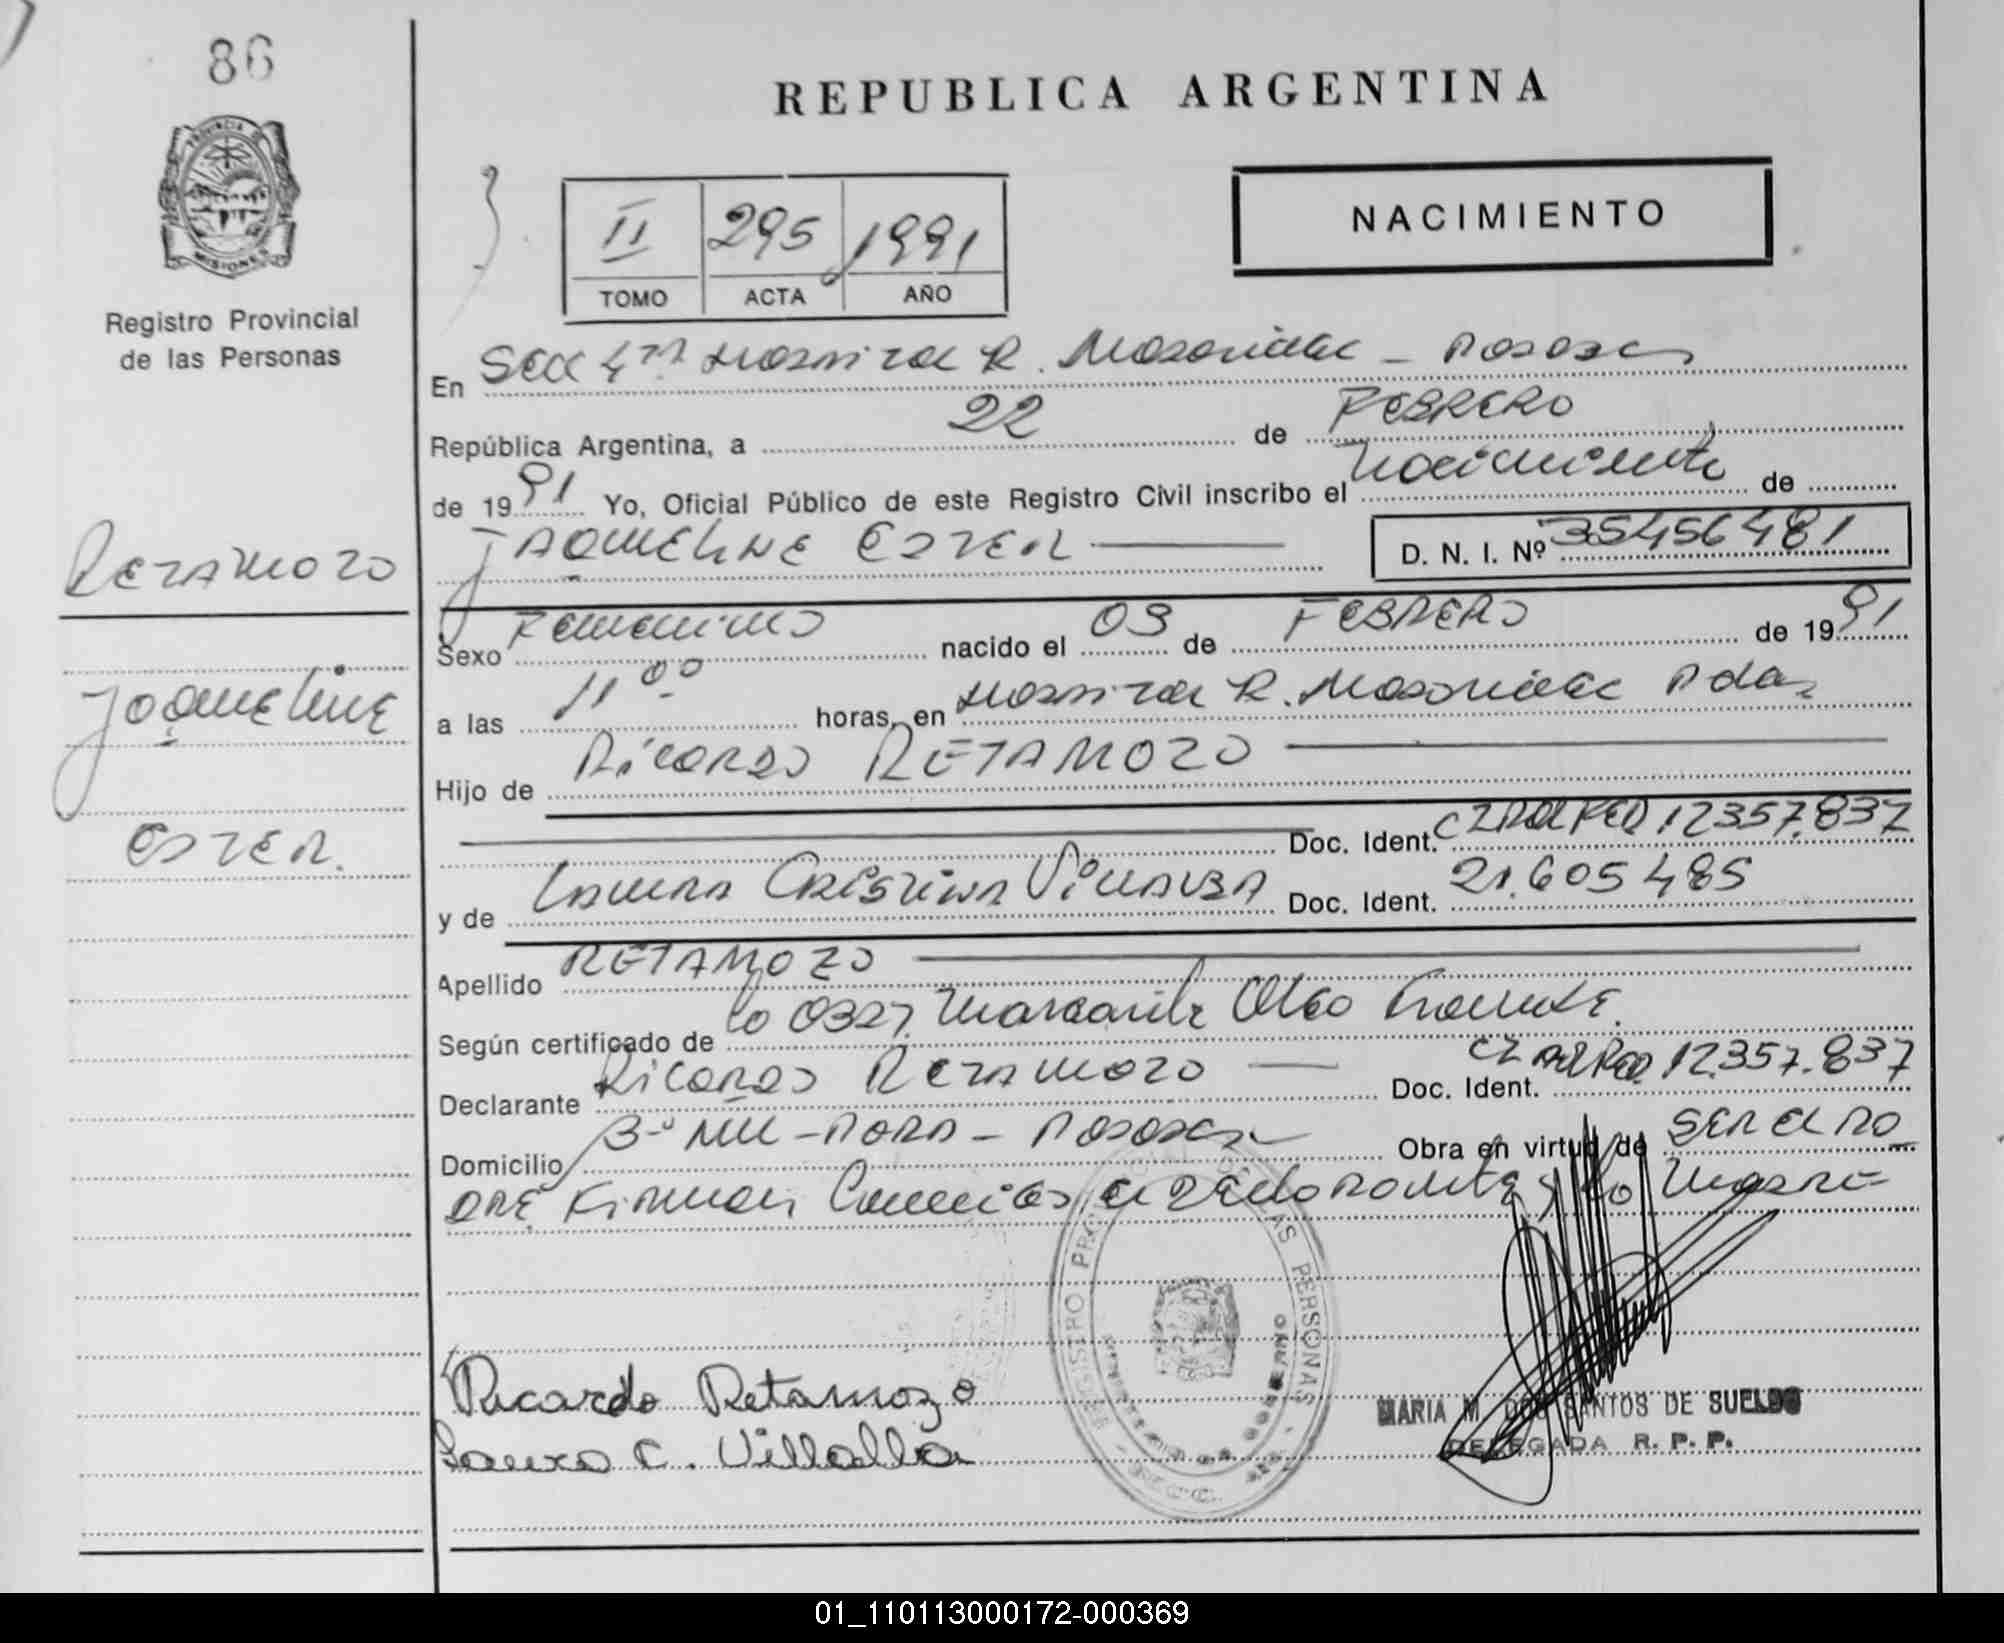 86
REPUBLICA ARGENTINA
PROVINCIA DE
MISIONES
Registro Provincial
de las Personas
II 295 1991
TOMO ACTA AÑO
NACIMIENTO
En Secc 4ta Hospital R. Madariaga - Posadas
República Argentina, a 22 de FEBRERO
de 1991 Yo, Oficial Público de este Registro Civil inscribo el Nacimiento de
JAQUELINE ESTER D. N. I. Nº 35456481
RETAMOZO
Jaqueline
ESTER.
Sexo Femenino nacido el 03 de FEBRERO de 1991
a las 11 00 horas, en Hospital R. Madariaga Pdas
Hijo de Ricardo RETAMOZO
Doc. Ident. 12357.837
y de Laura Cristina Villalba Doc. Ident. 21.605485
Apellido RETAMOZO
Según certificado de 0327. Margarita
Declarante Ricardo Retamozo Doc. Ident. 12.357.837
Domicilio Posadas Obra en virtud de ser el pa
dre Firman Conmigo el declarante y la Madre
REGISTRO PROVINCIAL DE LAS PERSONAS
Ricardo Retamozo
Laura C. Villalba
MARIA M. DOS SANTOS DE SUELDO
DELEGADA R. P. P.
01_110113000172-000369